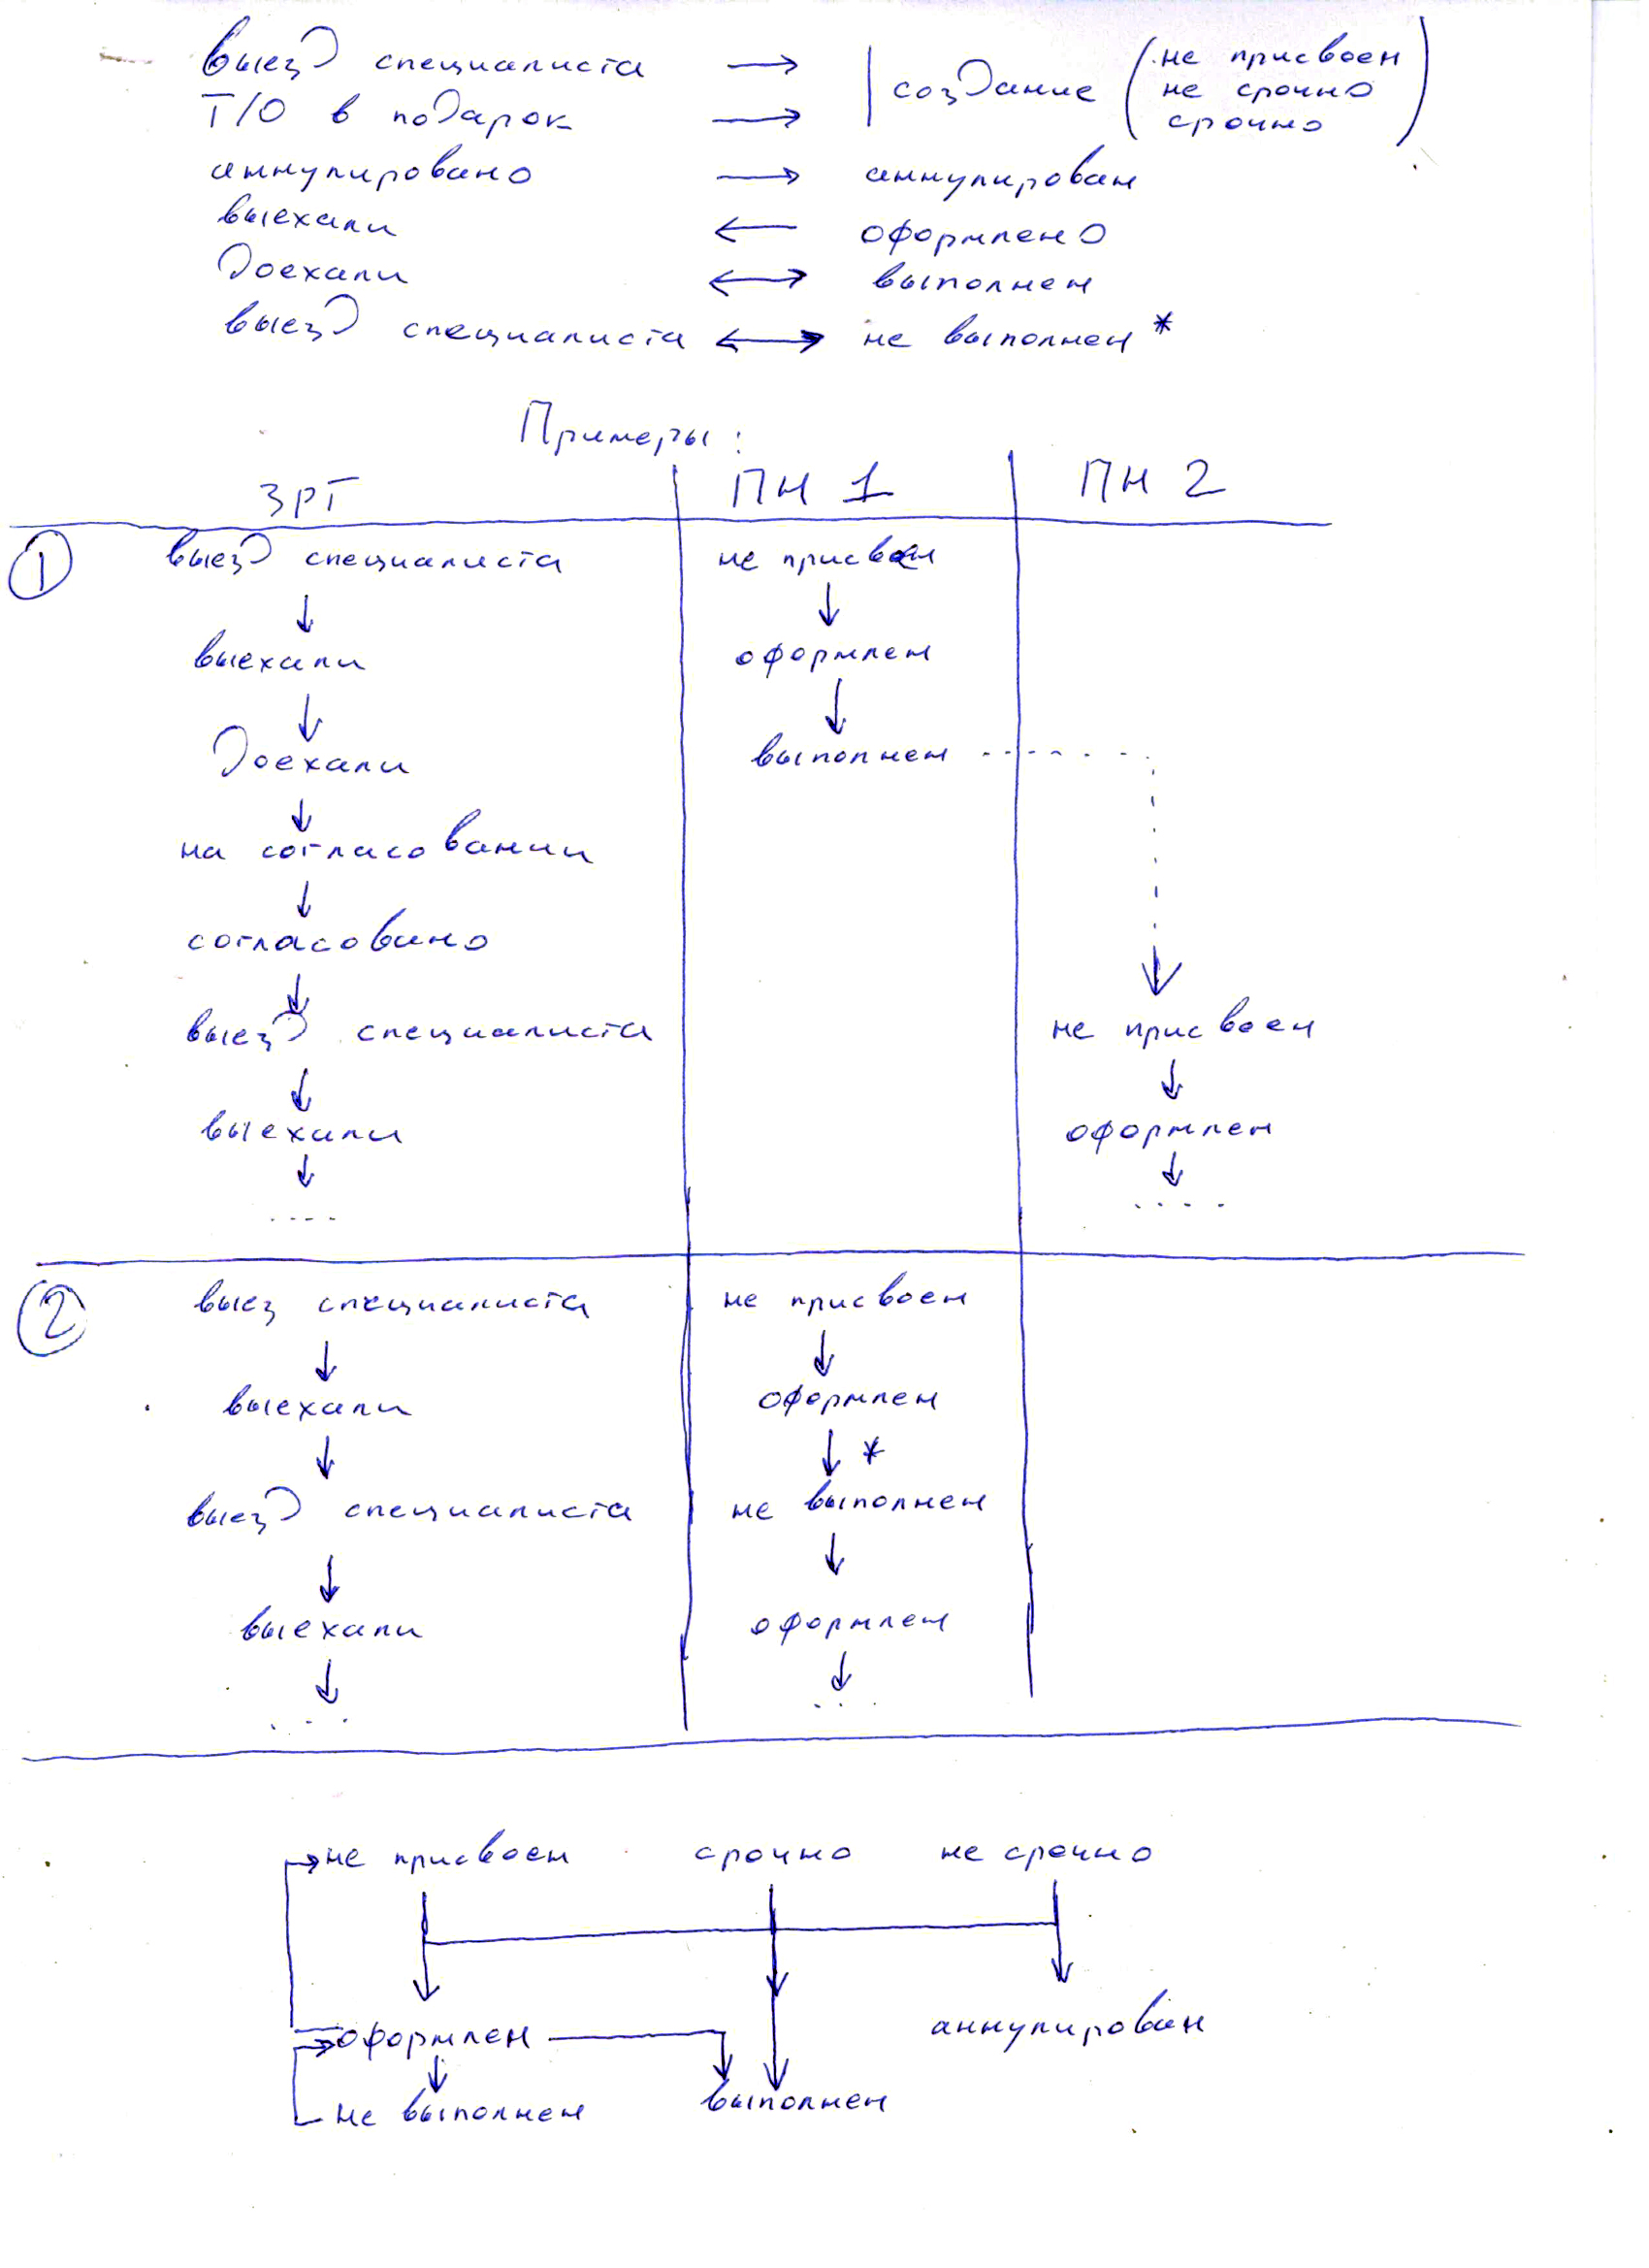 выезд специалиста → | создание (не присвоен
не срочно
срочно)
Т/О в подарок →
аннулировано → аннулирован
выехали ← оформлено
доехали ↔ выполнен
выезд специалиста ↔ не выполнен *
Примеры:
ЗРГ ПН 1 ПН 2
① выезд специалиста не присвоен
↓ ↓
выехали оформлен
↓ ↓
доехали выполнен
↓
на согласовании
↓
согласовано
↓
выезд специалиста не присвоен
↓ ↓
выехали оформлен
↓ ↓
.... ....
② выез специалиста не присвоен
↓ ↓
выехали оформлен
↓ ↓ *
выезд специалиста не выполнен
↓ ↓
выехали оформлен
↓ ↓
... ...
не присвоен срочно не срочно
оформлен аннулирован
не выполнен выполнен